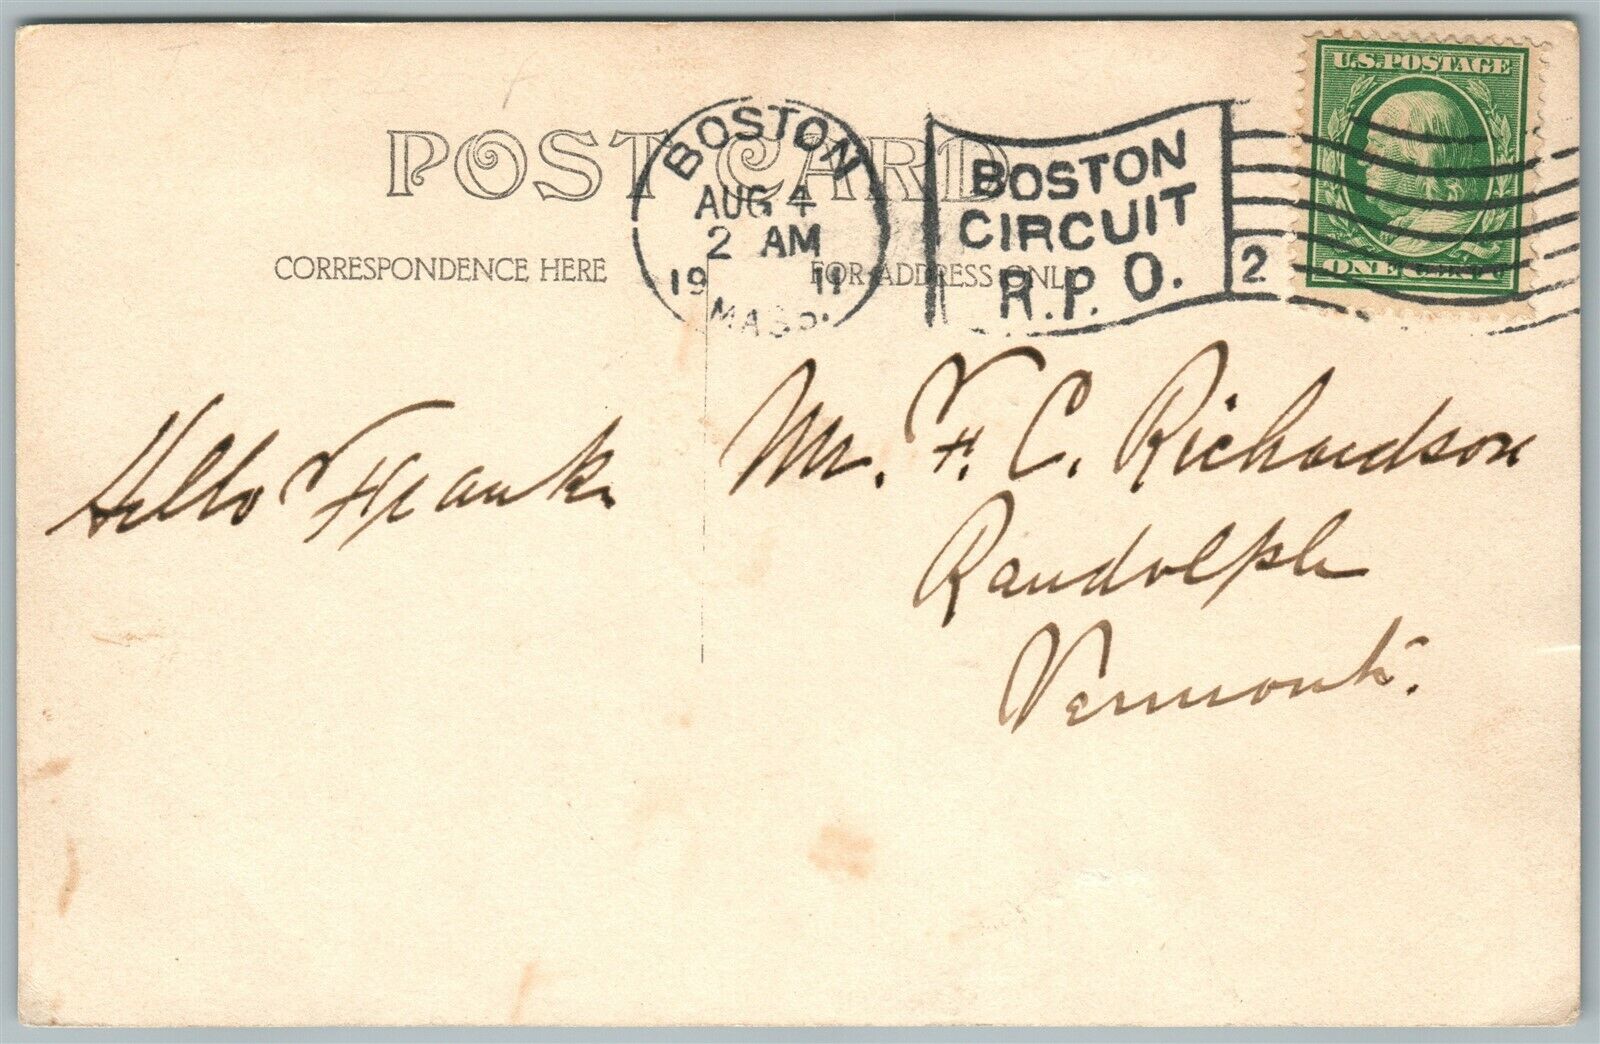 U.S. POSTAGE
POST CARD
BOSTON
AUG 4
2 AM
19 11
MASS.
BOSTON
CIRCUIT
R.P.O.
2
ONE
CORRESPONDENCE HERE
FOR ADDRESS ONLY
Hello Frank
Mr. F. C. Richardson
Randolph
Vermont.